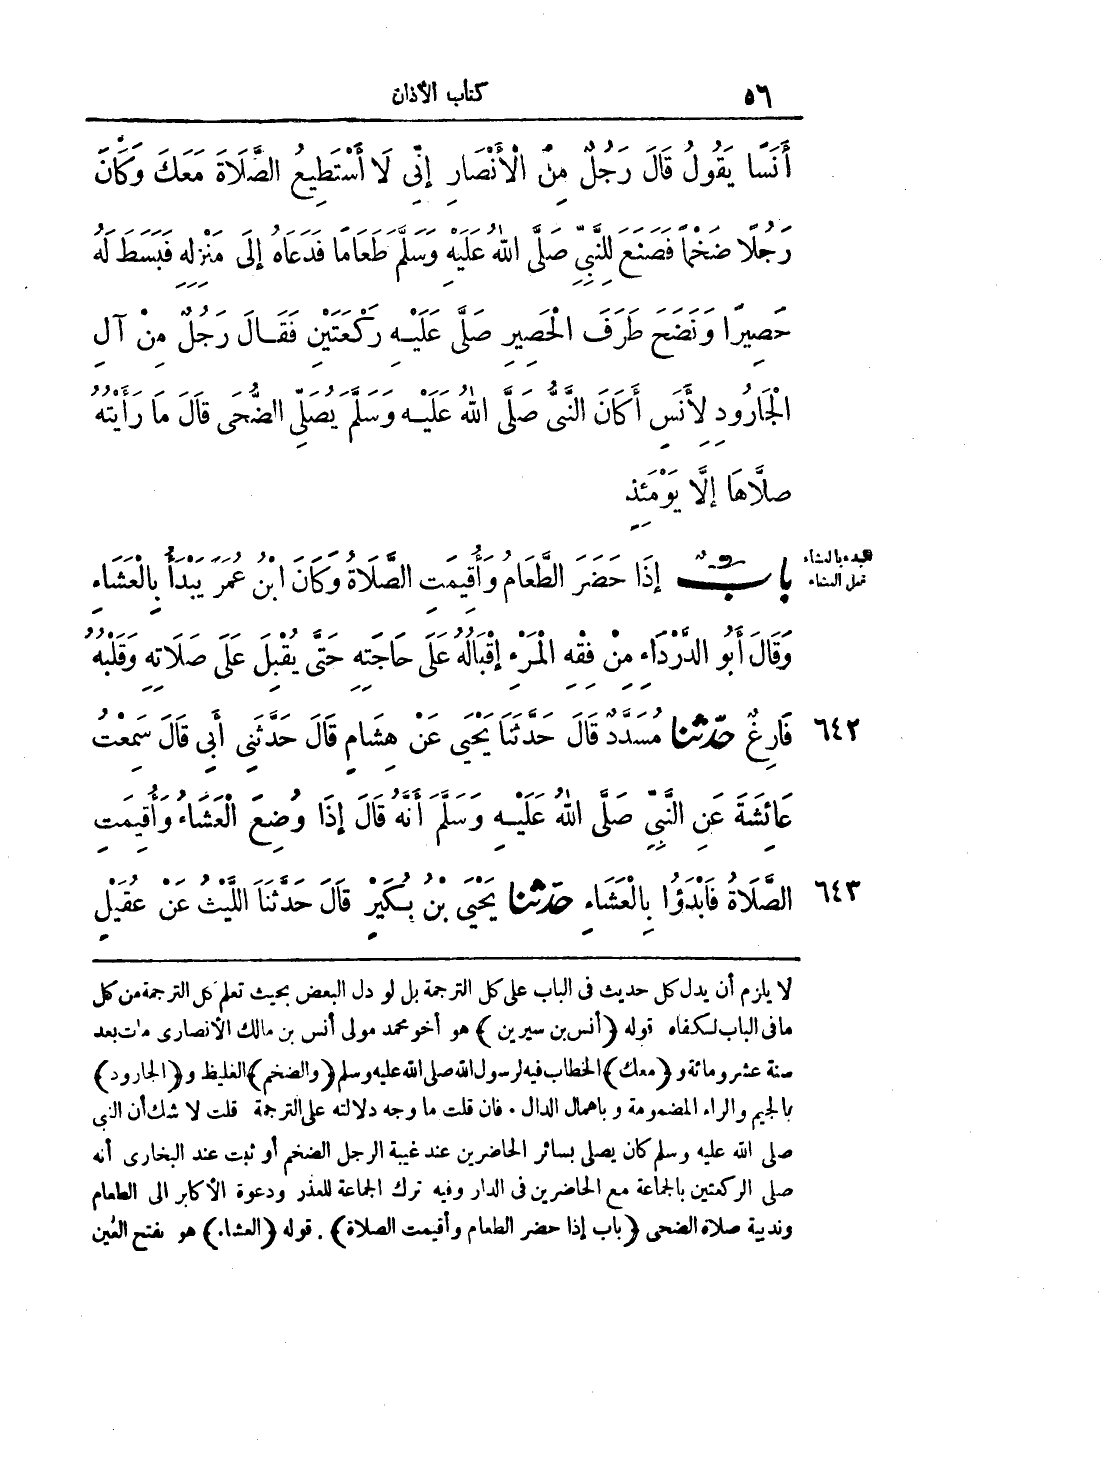 ٥٦ كتاب الأذان
أَنَسًا يَقُولُ قَالَ رَجُلٌ مِنَ الْأَنْصَارِ إِنِّى لَا أَسْتَطِيعُ الصَّلَاةَ مَعَكَ وَكَانَ
رَجُلًا ضَخْمًا فَصَنَعَ لِلنَّبِيِّ صَلَّى اللهُ عَلَيْهِ وَسَلَّمَ طَعَامًا فَدَعَاهُ إِلَى مَنْزِلِهِ فَبَسَطَ لَهُ
حَصِيرًا وَنَضَحَ طَرَفَ الْحَصِيرِ صَلَّى عَلَيْهِ رَكْعَتَيْنِ فَقَالَ رَجُلٌ مِنْ آلِ
الْجَارُودِ لِأَنَسٍ أَكَانَ النَّبِىُّ صَلَّى اللهُ عَلَيْهِ وَسَلَّمَ يُصَلِّى الضُّحَى قَالَ مَا رَأَيْتُهُ
صَلَّاهَا إِلَّا يَوْمَئِذٍ
البدء بالعشاء
قبل العشاء
بَابٌ إِذَا حَضَرَ الطَّعَامُ وَأُقِيمَتِ الصَّلَاةُ وَكَانَ ابْنُ عُمَرَ يَبْدَأُ بِالْعَشَاءِ
وَقَالَ أَبُو الدَّرْدَاءِ مِنْ فِقْهِ الْمَرْءِ إِقْبَالُهُ عَلَى حَاجَتِهِ حَتَّى يُقْبِلَ عَلَى صَلَاتِهِ وَقَلْبُهُ
٦٤٢ فَارِغٌ حَدَّثَنَا مُسَدَّدٌ قَالَ حَدَّثَنَا يَحْيَى عَنْ هِشَامٍ قَالَ حَدَّثَنِى أَبِى قَالَ سَمِعْتُ
عَائِشَةَ عَنِ النَّبِيِّ صَلَّى اللهُ عَلَيْهِ وَسَلَّمَ أَنَّهُ قَالَ إِذَا وُضِعَ الْعَشَاءُ وَأُقِيمَتِ
٦٤٣ الصَّلَاةُ فَابْدَؤُا بِالْعَشَاءِ حَدَّثَنَا يَحْيَى بْنُ بُكَيْرٍ قَالَ حَدَّثَنَا اللَّيْثُ عَنْ عُقَيْلٍ
لا يلزم أن يدل كل حديث فى الباب على كل الترجمة بل لو دل البعض بحيث تعلم كل الترجمة من كل
ما فى الباب لكفاه قوله (أنس بن سيرين) هو أخو محمد مولى أنس بن مالك الأنصارى مات بعد
سنة عشر ومائة و (معك) الخطاب فيه لرسول الله صلى الله عليه وسلم (والضخم) الغليظ و (الجارود)
بالجيم والراء المضمومة وباهمال الدال . فان قلت ما وجه دلالته على الترجمة قلت لا شك أن النبى
صلى الله عليه وسلم كان يصلى بسائر الحاضرين عند غيبة الرجل الضخم أو ثبت عند البخارى أنه
صلى الركعتين بالجماعة مع الحاضرين فى الدار وفيه ترك الجماعة للعذر ودعوة الأكابر الى الطعام
وندبية صلاة الضحى (باب إذا حضر الطعام وأقيمت الصلاة) . قوله (العشاء) هو بفتح العين